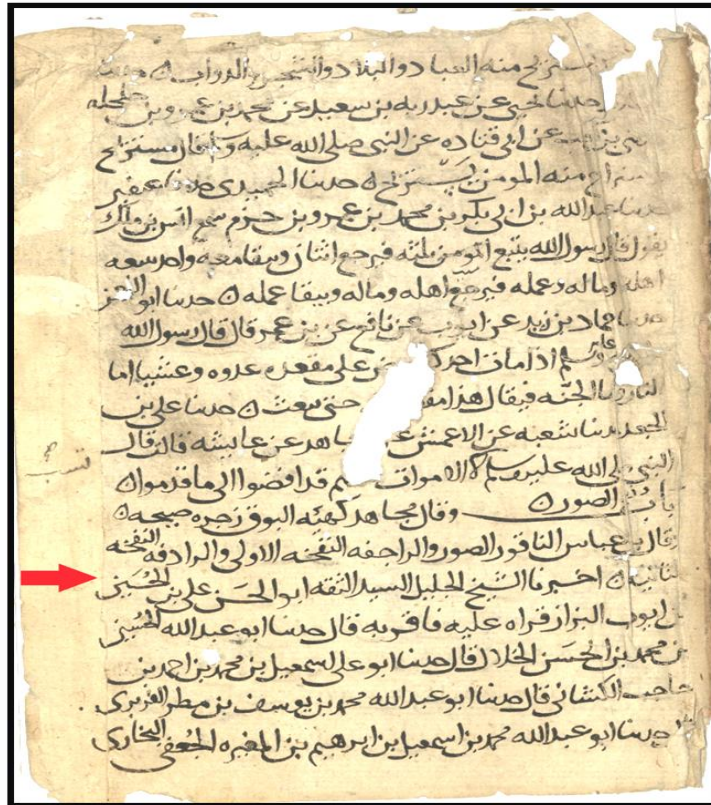 يستريح منه العباد والبلاد والشجر والدواب ه حدثنا
حدثنا يحيى عن عبد ربه بن سعيد عن محمد بن عمرو بن حلحله
عن ابى قتاده عن النبى صلى الله عليه وسلم قال مستريح
ومستراح منه المومن يستريح ه حدثنا الحميدى حدثنا سفين
حدثنا عبد الله بن ابى بكر بن محمد بن عمرو بن حزم سمع انس بن مالك
يقول قال رسول الله يتبع المومن ثلثه فيرجع اثنان ويبقا معه واحد يتبعه
اهله وماله وعمله فيرجع اهله وماله ويبقا عمله ه حدثنا ابو النعمن
حدثنا حماد بن زيد عن ايوب عن نافع عن بن عمر قال قال رسول الله
اذا مات احدكم عرض على مقعده غدوه وعشيا اما
النار واما الجنه فيقال هذا مقعدك حتى تبعث ه حدثنا على بن
الجعد حدثنا شعبه عن الاعمش عن مجاهد عن عايشه قالت قال
النبى صلى الله عليه وسلم لا الاموات فانهم قد افضوا الى ما قدموا ه
باب نفخ الصور ه وقال مجاهد كهيئه البوق زجره صيحه ه
وقال بن عباس الناقور الصور والراجفه النفخه الاولى والرادفه النفخه
الثانيه ه اخبرنا الشيخ الجليل السيد الثقه ابو الحسن على بن الحسين
بن ايوب البزاز قراه عليه فاقر به قال حدثنا ابو عبد الله الحسين
بن محمد بن الحسن الخلال قال حدثنا ابو على اسمعيل بن محمد بن احمد بن
حاجب الكشانى قال حدثنا ابو عبد الله محمد بن يوسف بن مطر الفربرى
حدثنا ابو عبد الله محمد بن اسمعيل بن ابرهيم بن المغيره الجعفى البخارى